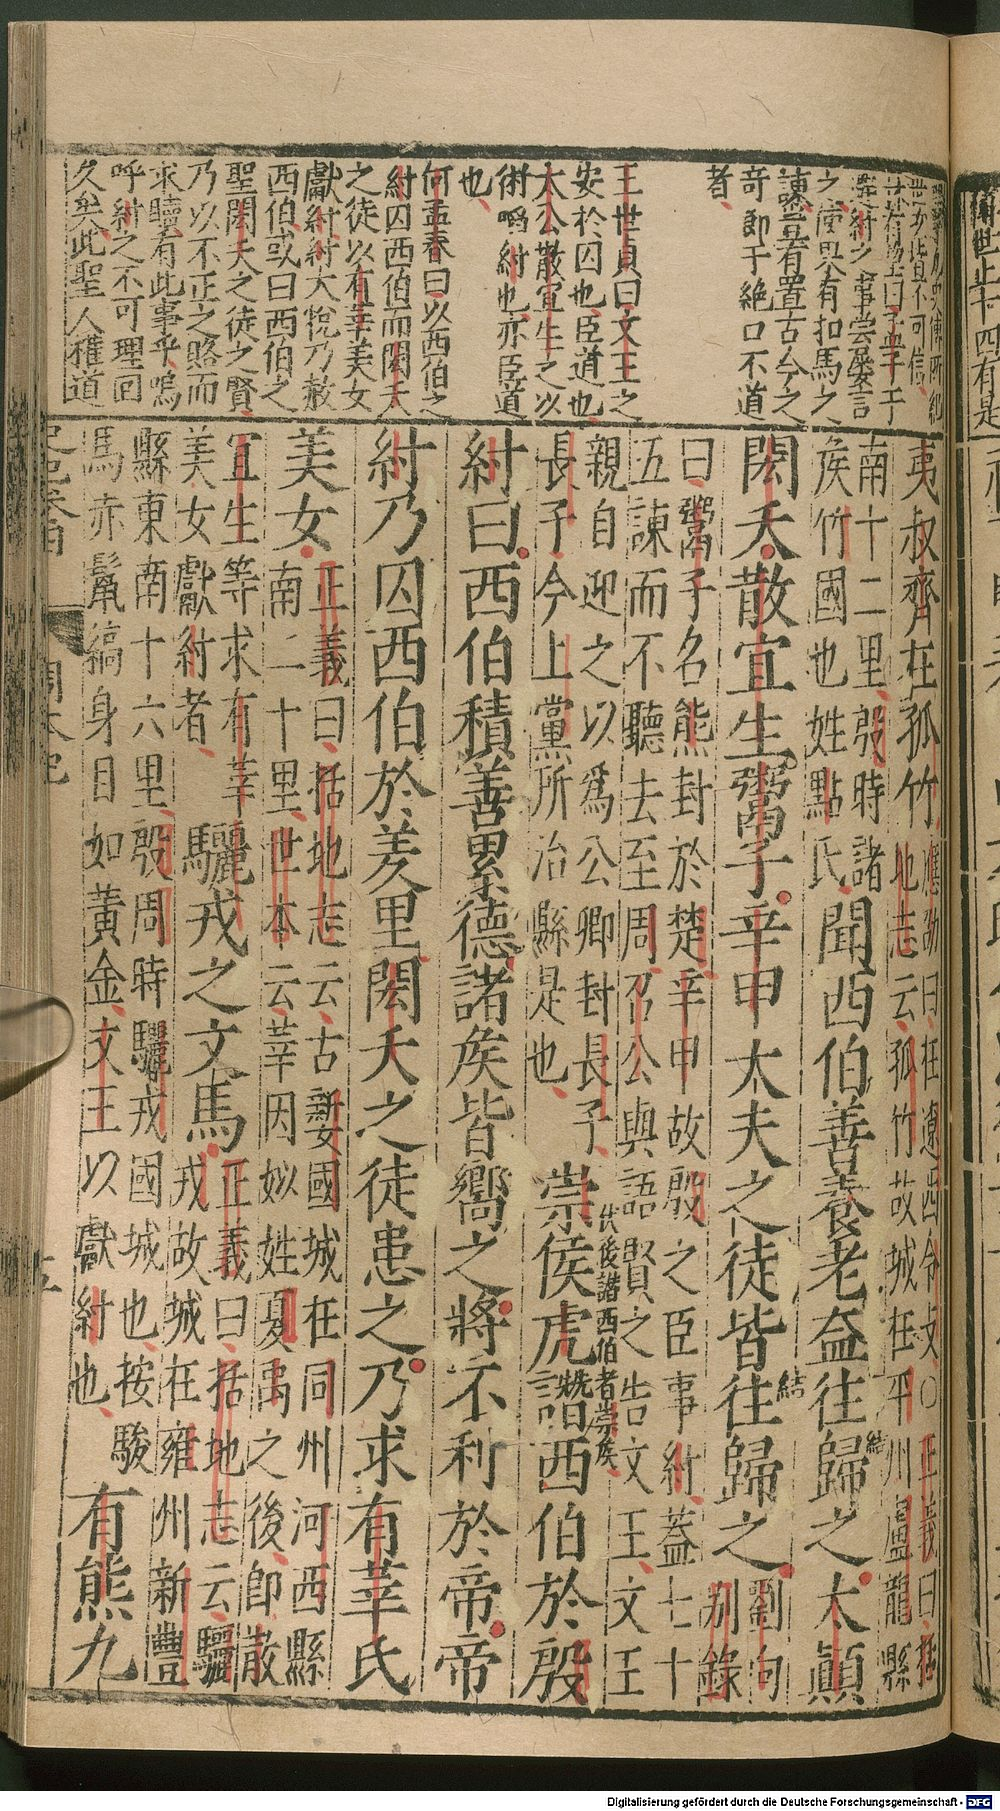 世次皆不可信
選紂之事嘗屢言
諫豈有置古今之
奇節于絕口不道
者
王世貞曰文王之
安於囚也臣道也
太公散宜生之以
術嚪紂也亦臣道
也
何孟春曰以西伯之
紂囚西伯而閎夭
之徒以有莘美女
獻紂紂大悅乃赦
西伯或曰西伯之
聖閎夭之徒之賢
乃以不正之賂而
求贖有此事乎嗚
呼紂之不可理囘
久矣此聖人權道
夷叔齊在孤竹
應劭曰在遼西令支〇正義曰括
地志云孤竹故城在平州盧龍縣
南十二里殷時諸
侯竹國也姓點氏
聞西伯善養老盍往歸之太顛
閎夭散宜生鬻子辛甲大夫之徒皆往歸之
劉向
別錄
曰鬻子名熊封於楚辛甲故殷之臣事紂蓋七十
五諫而不聽去至周召公與語賢之告文王文王
親自迎之以爲公卿封長子
長子今上黨所治縣是也
崇侯虎譖西伯於殷
紂曰西伯積善累德諸侯皆嚮之將不利於帝帝
紂乃囚西伯於羑里閎夭之徒患之乃求有莘氏
美女
正義曰括地志云古㜪國城在同州河西縣
南二十里世本云莘國姒姓夏禹之後卽散
宜生等求有莘
美女獻紂者
驪戎之文馬
正義曰括地志云驪
戎故城在雍州新豐
縣東南十六里殷周時驪戎國城也按駿
馬赤鬣縞身目如黃金文王以獻紂也
有熊九
Digitalisierung gefördert durch die Deutsche Forschungsgemeinschaft - DFG